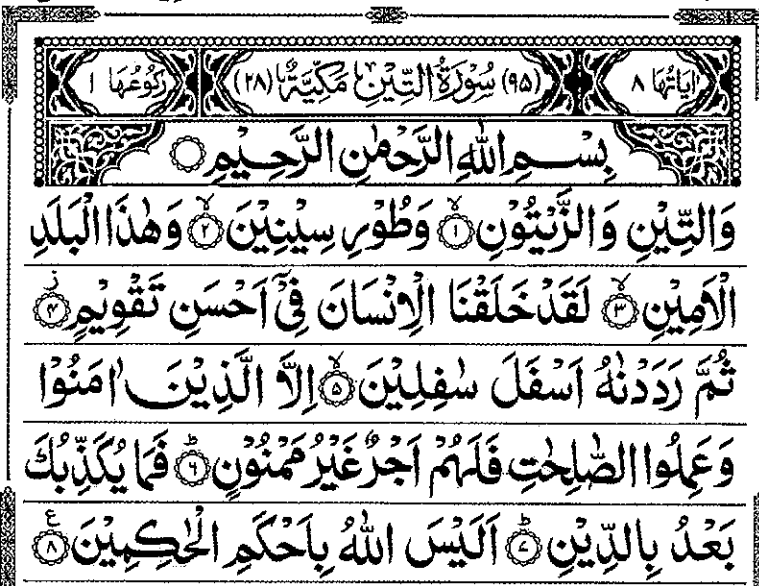 اٰيَاتُهَا ٨ (٩٥) سُوْرَةُ التِّيْنِ مَكِّيَّةٌ (٢٨) رُكُوْعُهَا ١
بِسْمِ اللّٰهِ الرَّحْمٰنِ الرَّحِيْمِ ○
وَالتِّيْنِ وَالزَّيْتُوْنِ ۙ‏﴿١﴾ وَطُوْرِ سِيْنِيْنَ ۙ‏﴿٢﴾ وَهٰذَا الْبَلَدِ
الْاَمِيْنِ ۙ‏﴿٣﴾ لَقَدْ خَلَقْنَا الْاِنْسَانَ فِيْٓ اَحْسَنِ تَقْوِيْمٍ ز ﴿۴﴾
ثُمَّ رَدَدْنٰهُ اَسْفَلَ سٰفِلِيْنَ ۙ‏﴿۵﴾ اِلَّا الَّذِيْنَ اٰمَنُوْا
وَعَمِلُوا الصّٰلِحٰتِ فَلَهُمْ اَجْرٌ غَيْرُ مَمْنُوْنٍ ؕ‏﴿۶﴾ فَمَا يُكَذِّبُكَ
بَعْدُ بِالدِّيْنِ ؕ‏﴿٧﴾ اَلَيْسَ اللّٰهُ بِاَحْكَمِ الْحٰكِمِيْنَ ع ﴿٨﴾